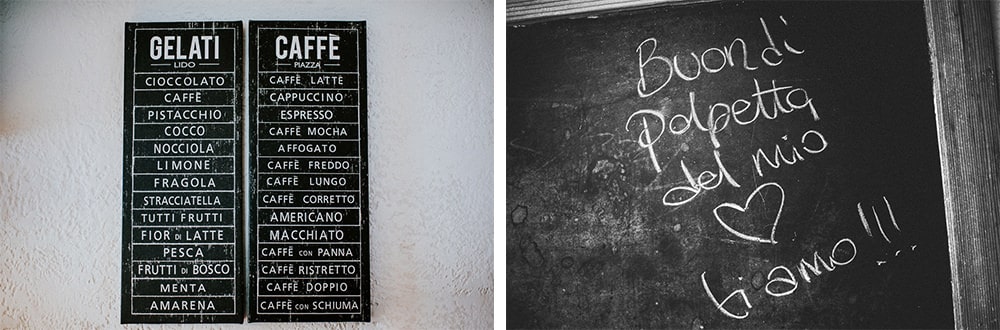 GELATI
LIDO
CIOCCOLATO
CAFFÈ
PISTACCHIO
COCCO
NOCCIOLA
LIMONE
FRAGOLA
STRACCIATELLA
TUTTI FRUTTI
FIOR di LATTE
PESCA
FRUTTI di BOSCO
MENTA
AMARENA
CAFFÈ
PIAZZA
CAFFÈ LATTE
CAPPUCCINO
ESPRESSO
CAFFÈ MOCHA
AFFOGATO
CAFFÈ FREDDO
CAFFÈ LUNGO
CAFFÈ CORRETTO
AMERICANO
MACCHIATO
CAFFÈ CON PANNA
CAFFÈ RISTRETTO
CAFFÈ DOPPIO
CAFFÈ CON SCHIUMA
Buondì
Polpetta
del mio
ti amo!!!